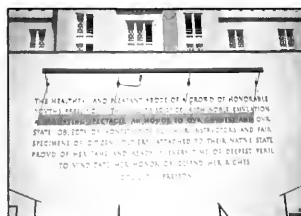 THE HEALTHFUL AND PLEASANT ABODE OF A CROWD OF HONORABLE
YOUTHS PRESSING UP THE HILL OF SCIENCE WITH NOBLE EMULATION
A GRATIFYING SPECTACLE AN HONOR TO OUR COUNTRY AND OUR
STATE OBJECTS OF HONEST PRIDE TO THEIR INSTRUCTORS AND FAIR
SPECIMENS OF CITIZEN SOLDIERS ATTACHED TO THEIR NATIVE STATE
PROUD OF HER FAME AND READY IN EVERY TIME OF DEEPEST PERIL
TO VINDICATE HER HONOR OR DEFEND HER RIGHTS
PRESTON